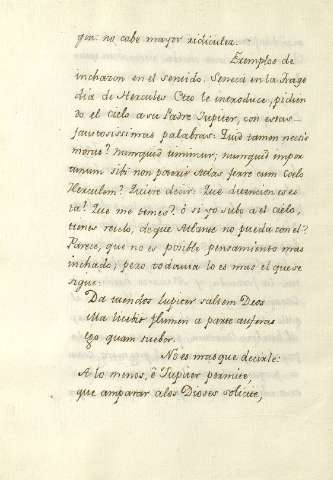 gia: no cabe mayor ridiculez.
Exemplos de
inchazon en el sentido. Seneca en la Trage
dia de Hercules Oeteo le introduce, pidien
do el cielo a su Padre Jupiter, con estas
faustosissimas palabras: Quid tamen nectis
moras? numquid timemur, numquid impor
tunum sibi non poterit Atlas ferre cum Coelo
Herculem? Quiere decir: Que detencion es es
ta? Que me temes? ó si yo subo a el cielo,
tienes recelo, de que Atlante no pueda con el?
Parece, que no es posible pensamiento mas
inchado; pero todavia lo es mas el que se
sigue:
Da tuendos Jupiter saltem Deos
Illa licebit flumen a parte auferas
Ego quam tuebor.
No es mas que decirle:
A lo menos, ô Jupiter permite,
que amparar a los Dioses solicite,